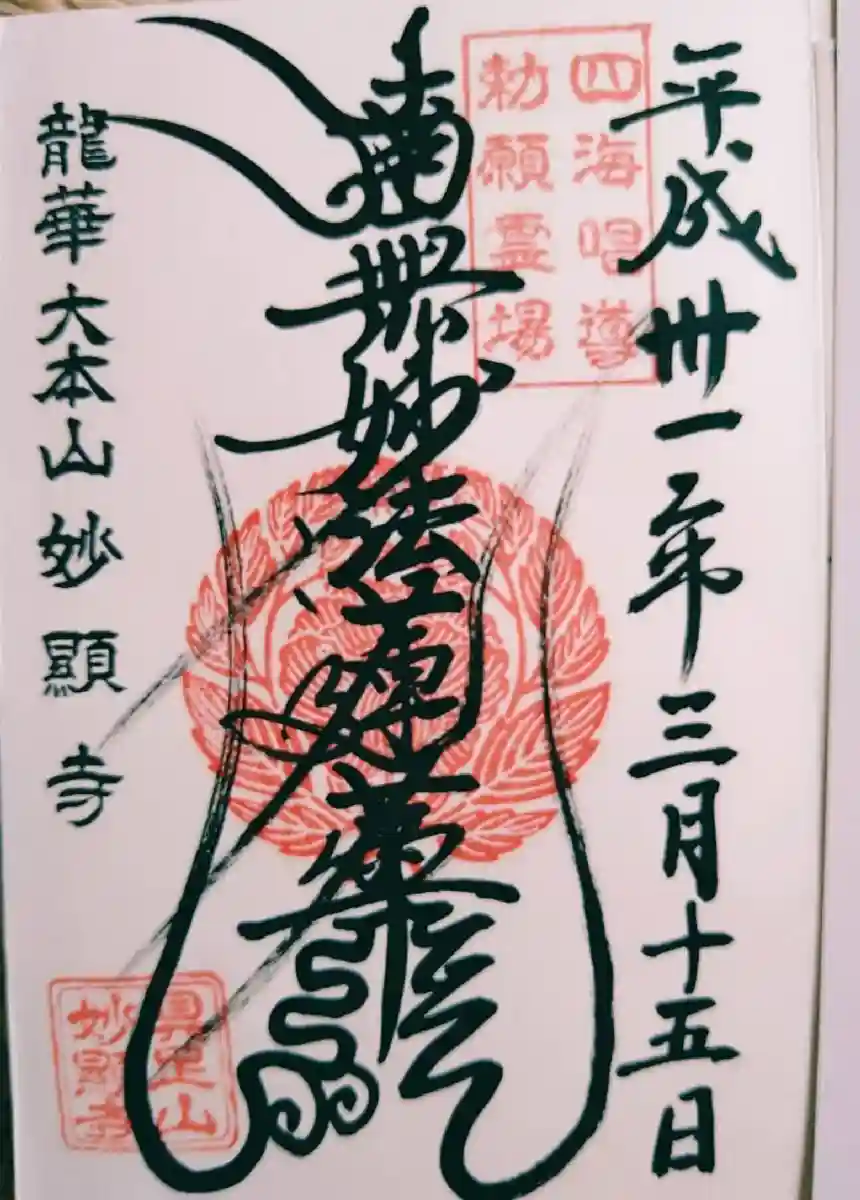 平成卅一年三月十五日
四海唱導
勅願霊場
南無妙法蓮華経
龍華大本山妙顯寺
具足山
妙顯寺